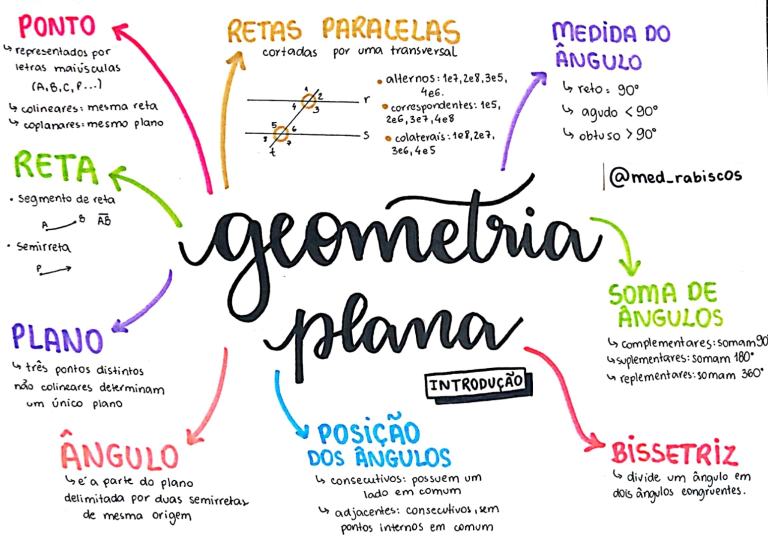 PONTO
↳ representados por
letras maiúsculas
(A, B, C, P...)
↳ colineares: mesma reta
↳ coplanares: mesmo plano
RETAS PARALELAS
cortadas por uma transversal
1 2
4 3
r
5 6
8 7
s
t
• alternos: 1e7, 2e8, 3e5,
4e6.
• correspondentes: 1e5,
2e6, 3e7, 4e8
• colaterais: 1e8, 2e7,
3e6, 4e5
MEDIDA DO
ÂNGULO
↳ reto = 90°
↳ agudo < 90°
↳ obtuso > 90°
@med_rabiscos
RETA
• segmento de reta
A B AB
• semirreta
P
geometria
plana
INTRODUÇÃO
SOMA DE
ÂNGULOS
↳ complementares: somam 90°
↳ suplementares: somam 180°
↳ replementares: somam 360°
PLANO
↳ três pontos distintos
não colineares determinam
um único plano
ÂNGULO
↳ é a parte do plano
delimitada por duas semirretas
de mesma origem
POSIÇÃO
DOS ÂNGULOS
↳ consecutivos: possuem um
lado em comum
↳ adjacentes: consecutivos, sem
pontos internos em comum
BISSETRIZ
↳ divide um ângulo em
dois ângulos congruentes.